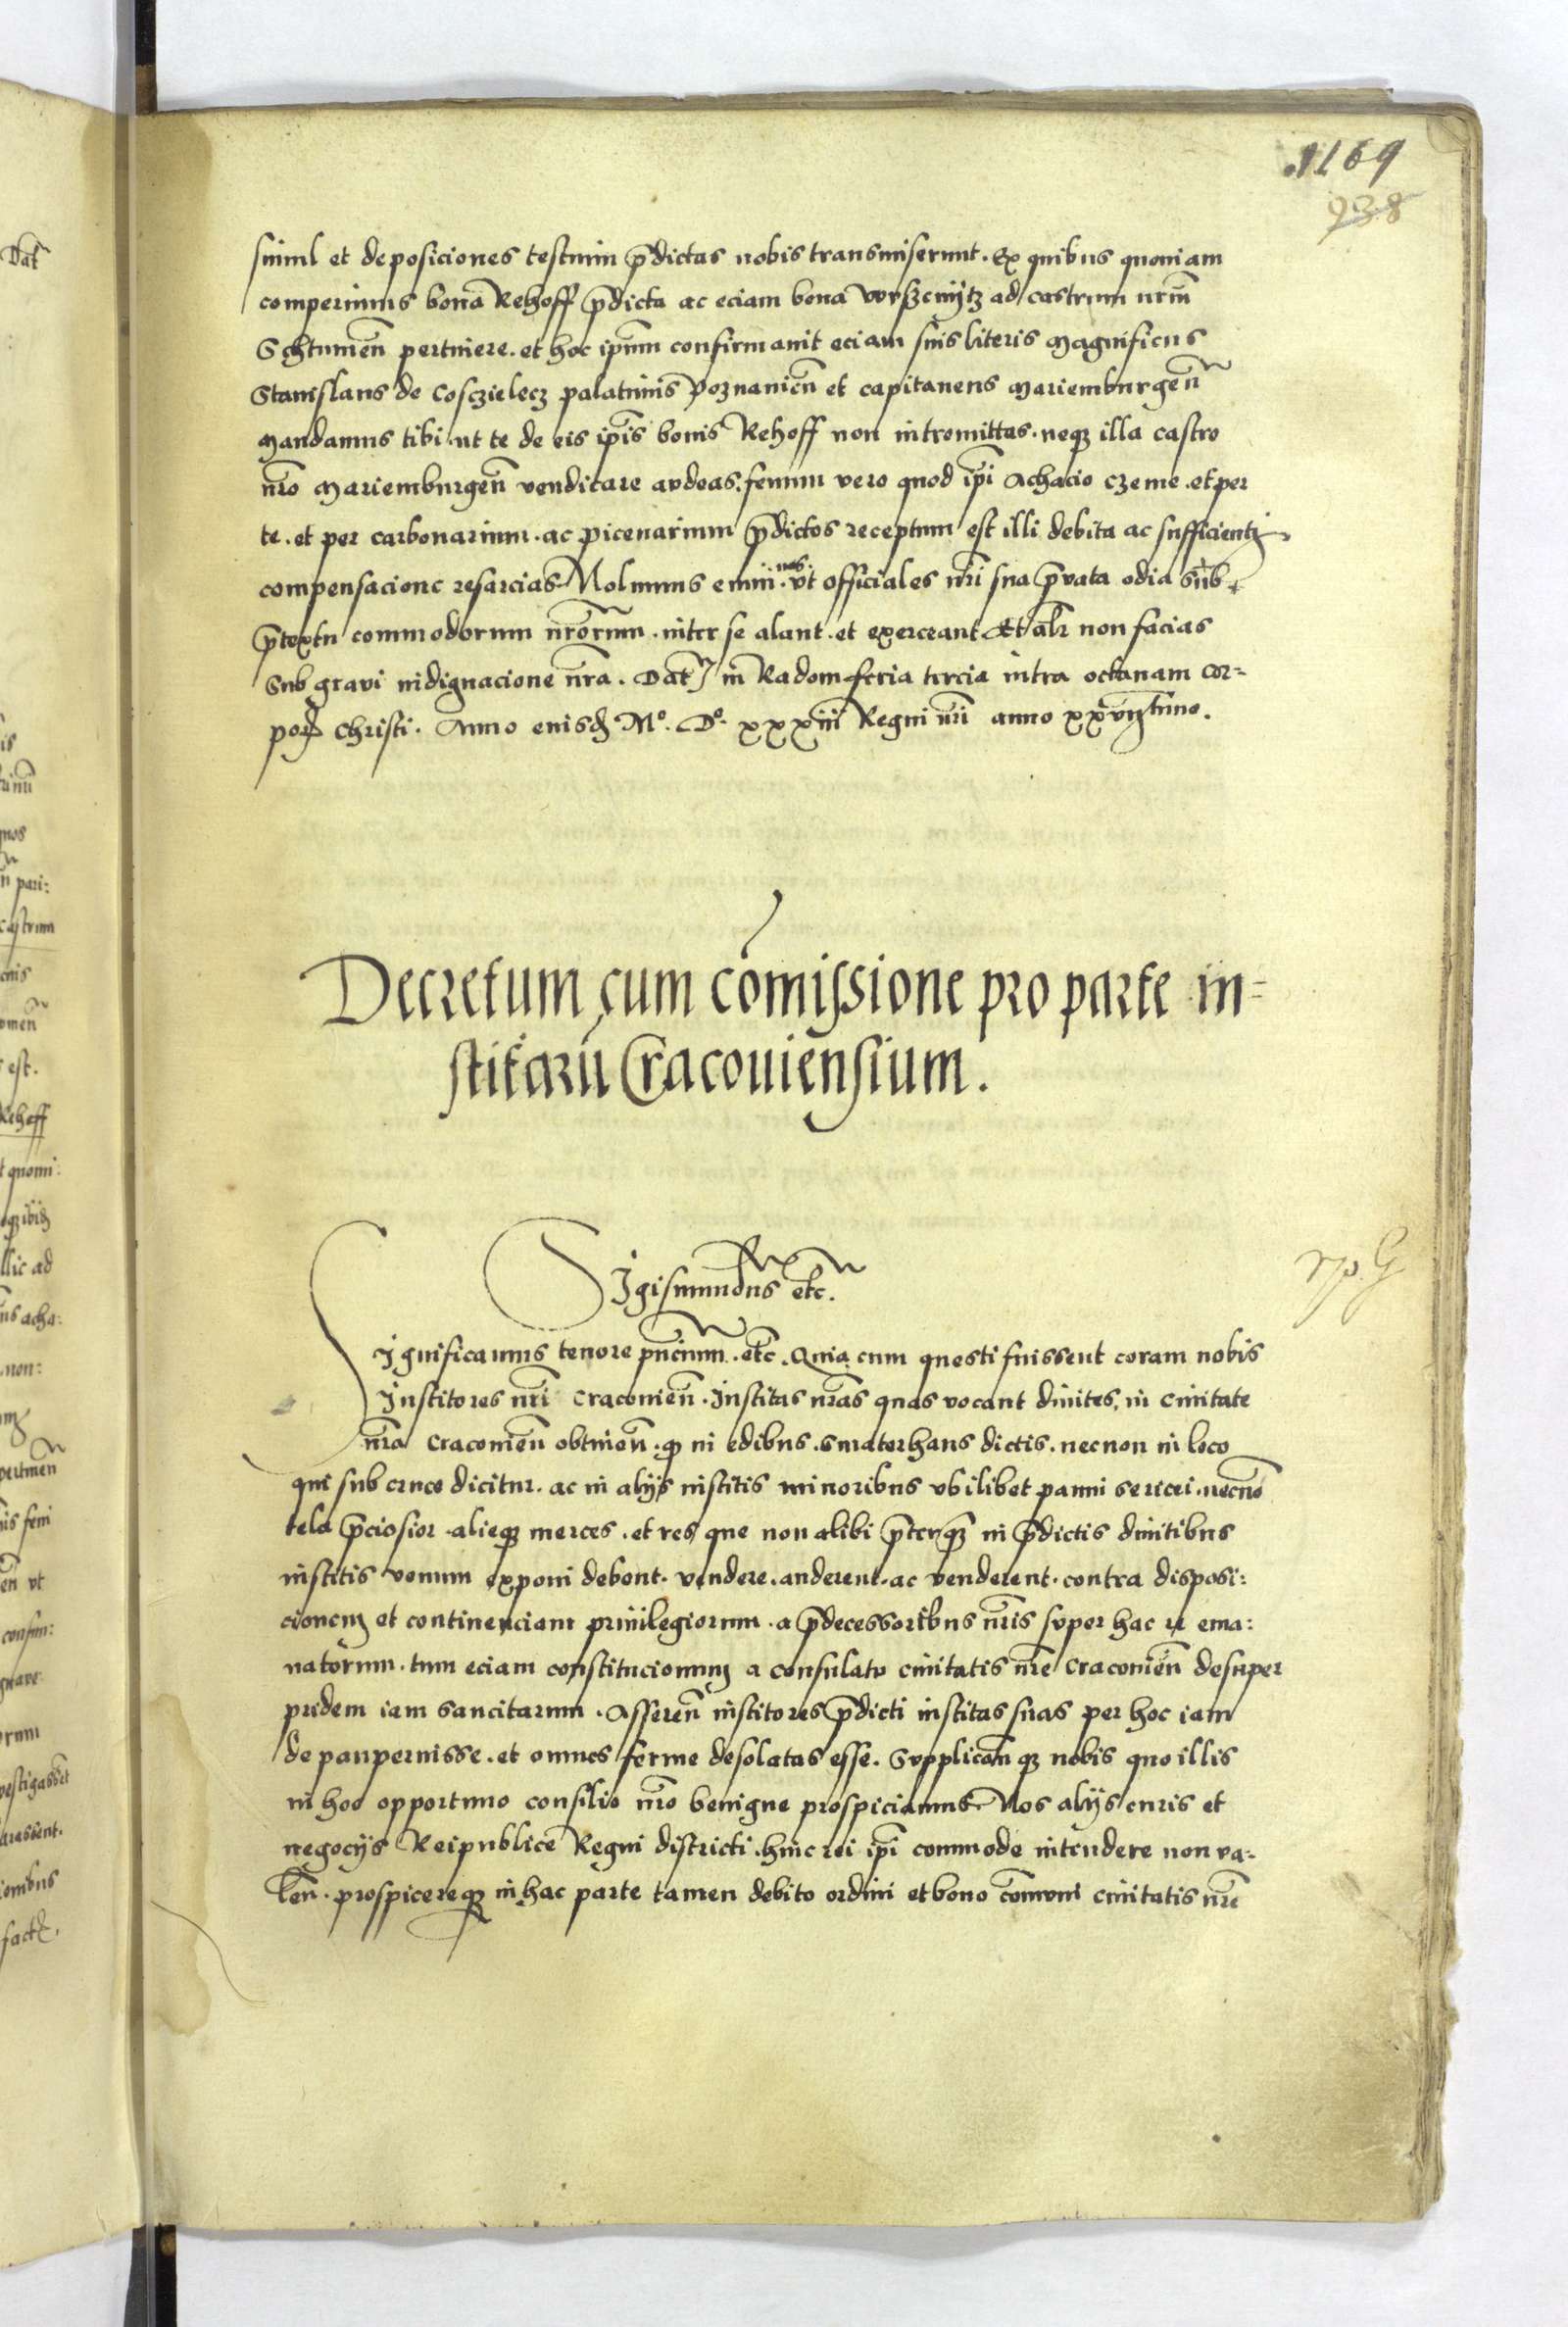 1169
938
simul et deposiciones testium p̄dictas nobis transmiserunt. Ex quibus quoniam
comperimus bona Rehoff p̄dicta ac eciam bona vorszenytz ad castrum nr̄m
Schtumen̄ pertinere. et hoc ip̄um confirmauit eciam suis literis Magnificus
Stanislaus de Cosczielecz palatinus Poznanien̄ et capitaneus Mariemburgen̄
Mandamus tibi ut te de eis ip̄is bonis Rehoff non intromittas. neqꝫ illa castro
nr̄o Mariemburgen̄ vendicare audeas. fenum vero quod ip̄i Achacio czeme. et per
te. et per carbonarium. ac picenarium p̄dictos receptum est illi debita ac sufficienti
compensacione resarcias Nolumus enim. ut officiales nr̄i sua p̄uata odia sub
p̄textu commodorum nr̄orum. inter se alant. et exerceant Et alr̄ non facias
sub graui indignacione nr̄a. Dat̄ in Radom feria tercia intra octauam Cor-
porꝭ Christi. Anno eiusdꝫ Mᵒ. Dᵒ. xxxiii Regni nr̄i anno xxvii̅mo.
Decretum cum com̄issione pro parte in=
stitarū Cracouiensium.
Sigismundus etc̄.
rp. G
Significamus tenore pn̄cium. etc̄. Quia cum questi fuissent coram nobis
Institores nr̄i Cracouien̄. Institas nr̄as quas vocant diuites, in Ciuitate
nr̄a Cracouien̄ obtinen̄. qꝫ in edibus. Smaterhaus dictis. necnon in loco
qui sub cruce dicitur. ac in alijs institis minoribus vbilibet panni sericei. necno̅
tela p̄ciosior. alieqꝫ merces. et res que non alibi p̄terqꝫ in p̄dictis diuitibus
institis venum exponi debent. vendere. auderent. ac venderent. contra disposi:
cionem et continenciam priuilegiorum. a p̄decessoribus nr̄is super hac re ema:
natorum. tum eciam constitucionum a consulatu ciuitatis nr̄e Cracouien̄ desuper
pridem iam sancitarum. Asseren̄ institores p̄dicti institas suas per hoc iam
depauperuisse. et omnes ferme desolatas esse. Supplican̄qꝫ nobis quo illis
in hoc opportuno consilio nr̄o benigne prospiciamus Nos alijs curis et
negocijs Reipublice Regni districti. huic rei ip̄i commode intendere non va-
len̄. prospicereqꝫ in hac parte tamen debito ordini et bono com̄uni ciuitatis nr̄e